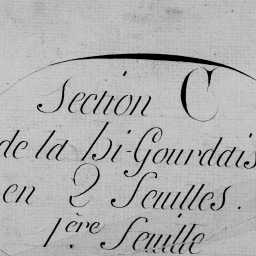 Section C
de la hi-Gourdais
en 2 Feuilles.
1ère Feuille